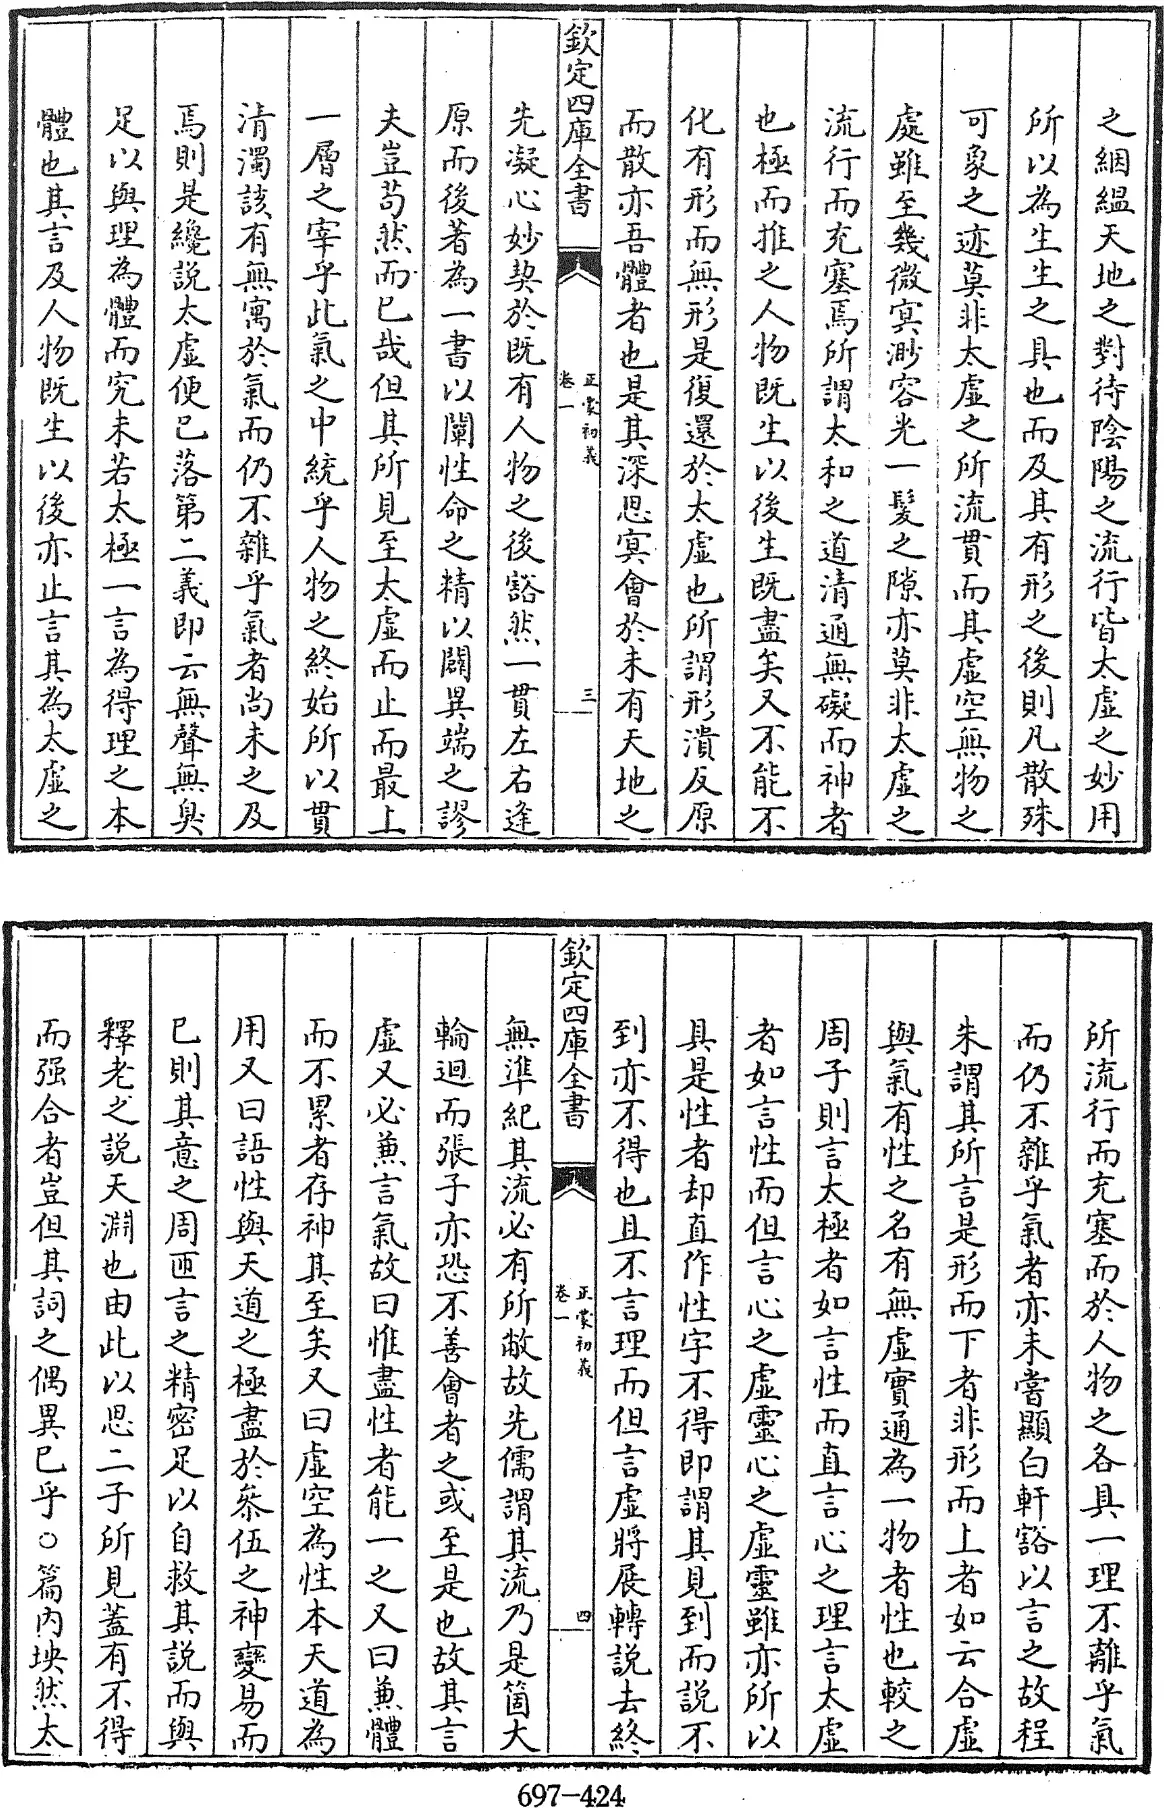 之絪緼天地之對待陰陽之流行皆太虛之妙用
所以為生生之具也而及其有形之後則凡散殊
可象之迹莫非太虛之所流貫而其虛空無物之
處雖至幾微寘渺容光一髮之隙亦莫非太虛之
流行而充塞焉所謂太和之道清通無礙而神者
也極而推之人物既生以後生既盡矣又不能不
化有形而無形是復還於太虛也所謂形潰反原
而散亦吾體者也是其深思寘會於未有天地之
欽定四庫全書
正蒙初義
卷一
三
先凝心妙契於既有人物之後豁然一貫左右逢
原而後著為一書以闡性命之精以闢異端之謬
夫豈苟然而已哉但其所見至太虛而止而最上
一層之宰乎此氣之中統乎人物之終始所以貫
清濁該有無寓於氣而仍不雜乎氣者尚未之及
焉則是纔說太虛便已落第二義即云無聲無臭
足以與理為體而究未若太極一言為得理之本
體也其言及人物既生以後亦止言其為太虛之
所流行而充塞而於人物之各具一理不離乎氣
而仍不雜乎氣者亦未嘗顯白軒豁以言之故程
朱謂其所言是形而下者非形而上者如云合虛
與氣有性之名有無虛實通為一物者性也較之
周子則言太極者如言性而直言心之理言太虛
者如言性而但言心之虛靈心之虛靈雖亦所以
具是性者却直作性字不得即謂其見到而說不
到亦不得也且不言理而但言虛將展轉說去終
欽定四庫全書
正蒙初義
卷一
四
無準紀其流必有所敝故先儒謂其流乃是箇大
輪迴而張子亦恐不善會者之或至是也故其言
虛又必兼言氣故曰惟盡性者能一之又曰兼體
而不累者存神其至矣又曰虛空為性本天道為
用又曰語性與天道之極盡於叅伍之神變易而
已則其意之周匝言之精密足以自救其說而與
釋老之說天淵也由此以思二子所見蓋有不得
而强合者豈但其詞之偶異已乎○篇内坱然太
697-424